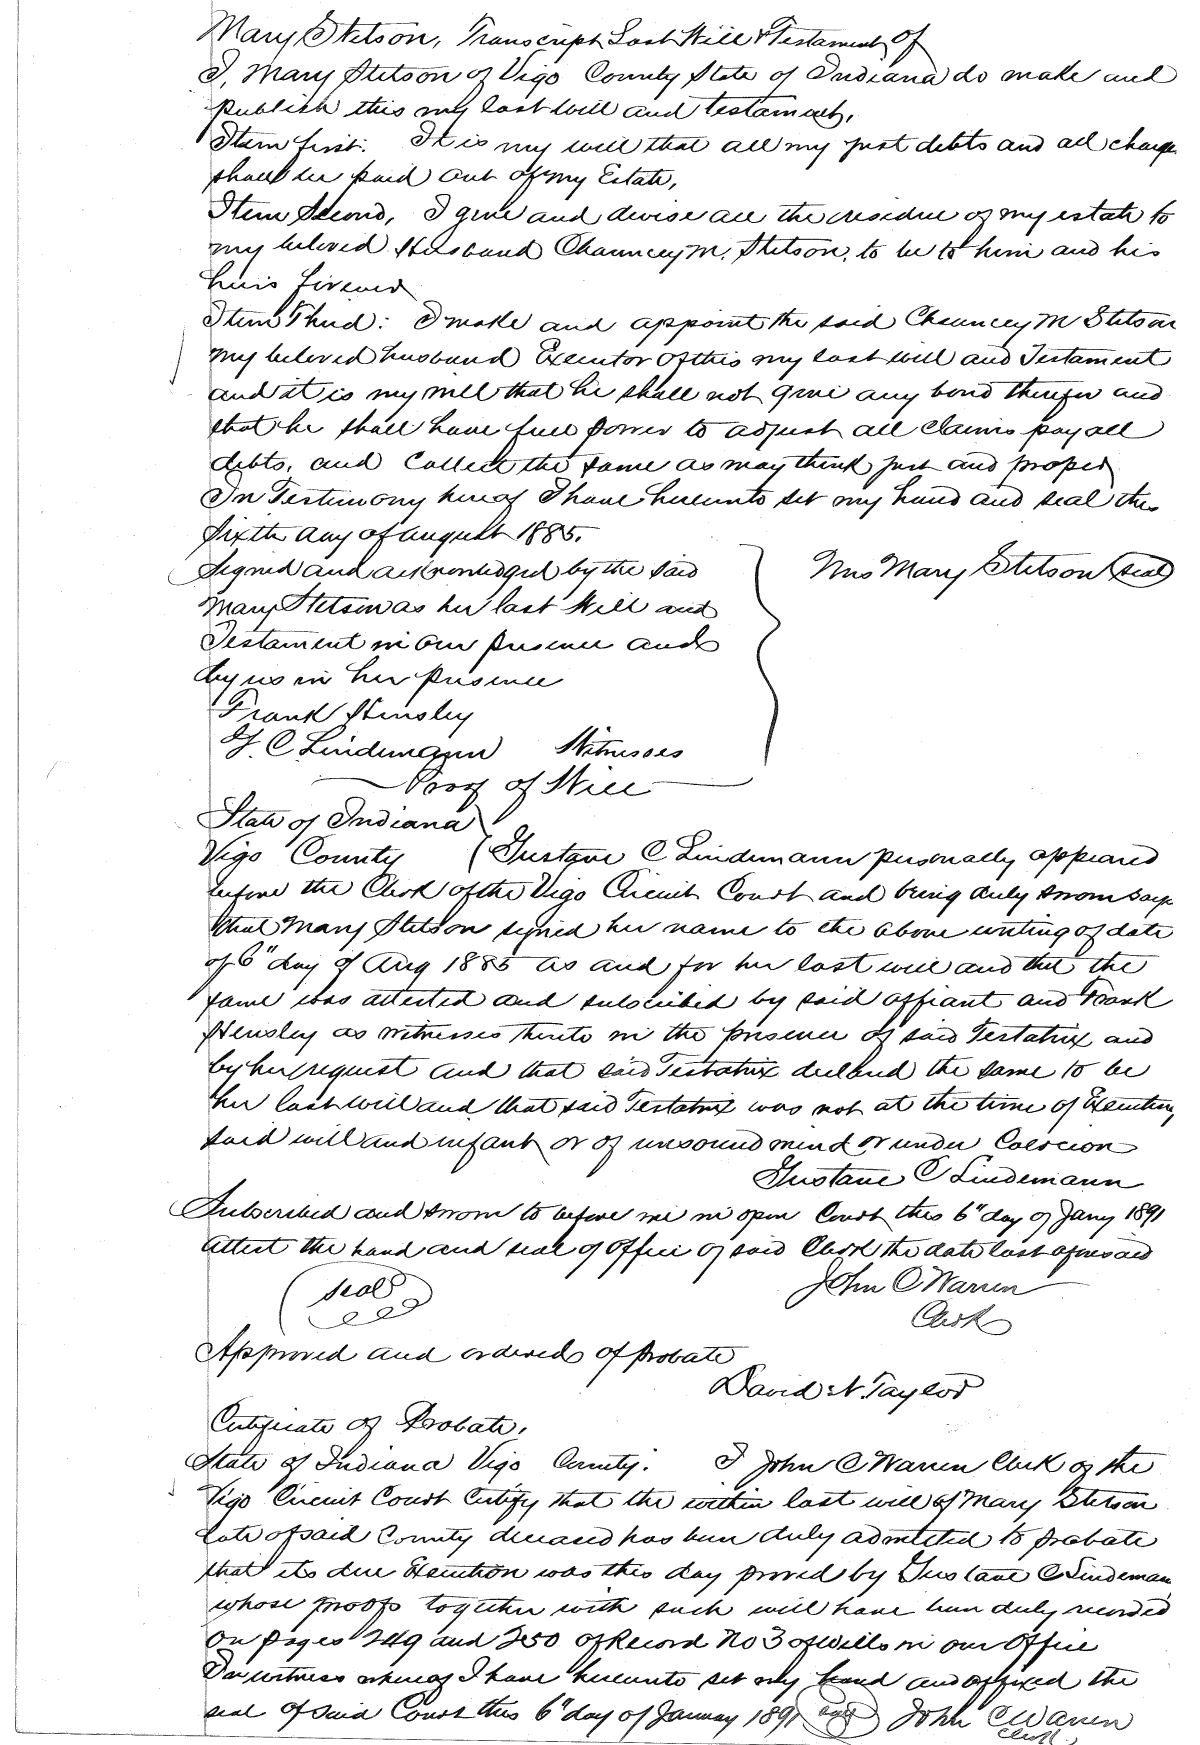 Mary Stetson, Transcript Last Will & Testament of
I, Mary Stetson of Vigo County State of Indiana do make and
publish this my last will and testament,
Item first. It is my will that all my just debts and all charges
shall be paid out of my Estate,
Item Second, I give and devise all the residue of my estate to
my beloved Husband Chauncey M. Stetson, to be to him and his
heirs forever
Item Third: I make and appoint the said Chauncey M Stetson
my beloved husband Executor of this my last will and Testament
and it is my will that he shall not give any bond therefor and
that he shall have full power to adjust all claims pay all
debts, and Collect the same as may think just and proper
In Testimony hereof I have hereunto set my hand and seal this
sixth day of august 1885.
Signed and acknowledged by the said
Mary Stetson as her last Will and
Testament in our presence and
by us in her presence
Mrs Mary Stetson (seal)
Frank Hensley
G. C Lindemann Witnesses
Proof of Will
State of Indiana
Vigo County ( Gustave C Lindemann personally appeared
before the Clerk of the Vigo Circuit Court and being duly sworn says
that Mary Stetson signed her name to the above writing of date
of 6" day of Aug 1885 as and for her last will and that the
same was attested and subscribed by said affiant and Frank
Hensley as witnesses thereto in the presence of said Testatrix and
by her request and that said Testatrix declared the same to be
her last will and that said Testatrix was not at the time of Executing
said will and infant or of unsound mind or under Coercion
Gustave C Lindemann
Subscribed and sworn to before me in open Court this 6" day of Jany 1891
attest the hand and seal of Office of said Clerk the date last aforesaid
(seal) John C Warren
Clerk
Approved and ordered of probate
David N. Taylor
Certificate of Probate.
State of Indiana Vigo County. I John C Warren Clerk of the
Vigo Circuit Court Certify that the within last will of Mary Stetson
late of said County deceased has been duly admitted to probate
that its due Execution was this day proved by Gustave C Lindeman
whose proofs together with such will have been duly recorded
on pages 249 and 250 of Record No 3 of Wills in our Office
In witness whereof I have hereunto set my hand and affixed the
seal of said Court this 6" day of January 1891 (seal) John C Warren
Clerk.